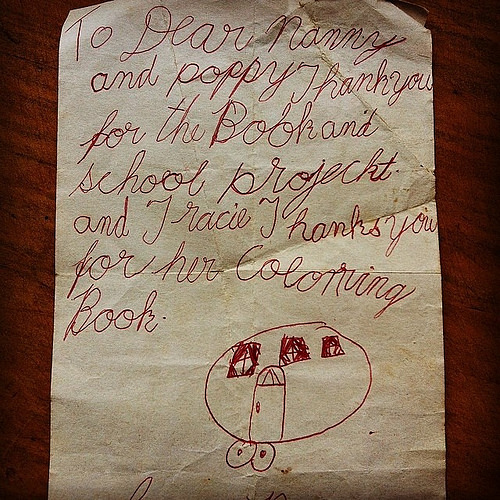 To Dear Nanny
and poppy Thankyou
for the Book and
school projecht.
and Tracie Thanks you
for her Coloming
Book.